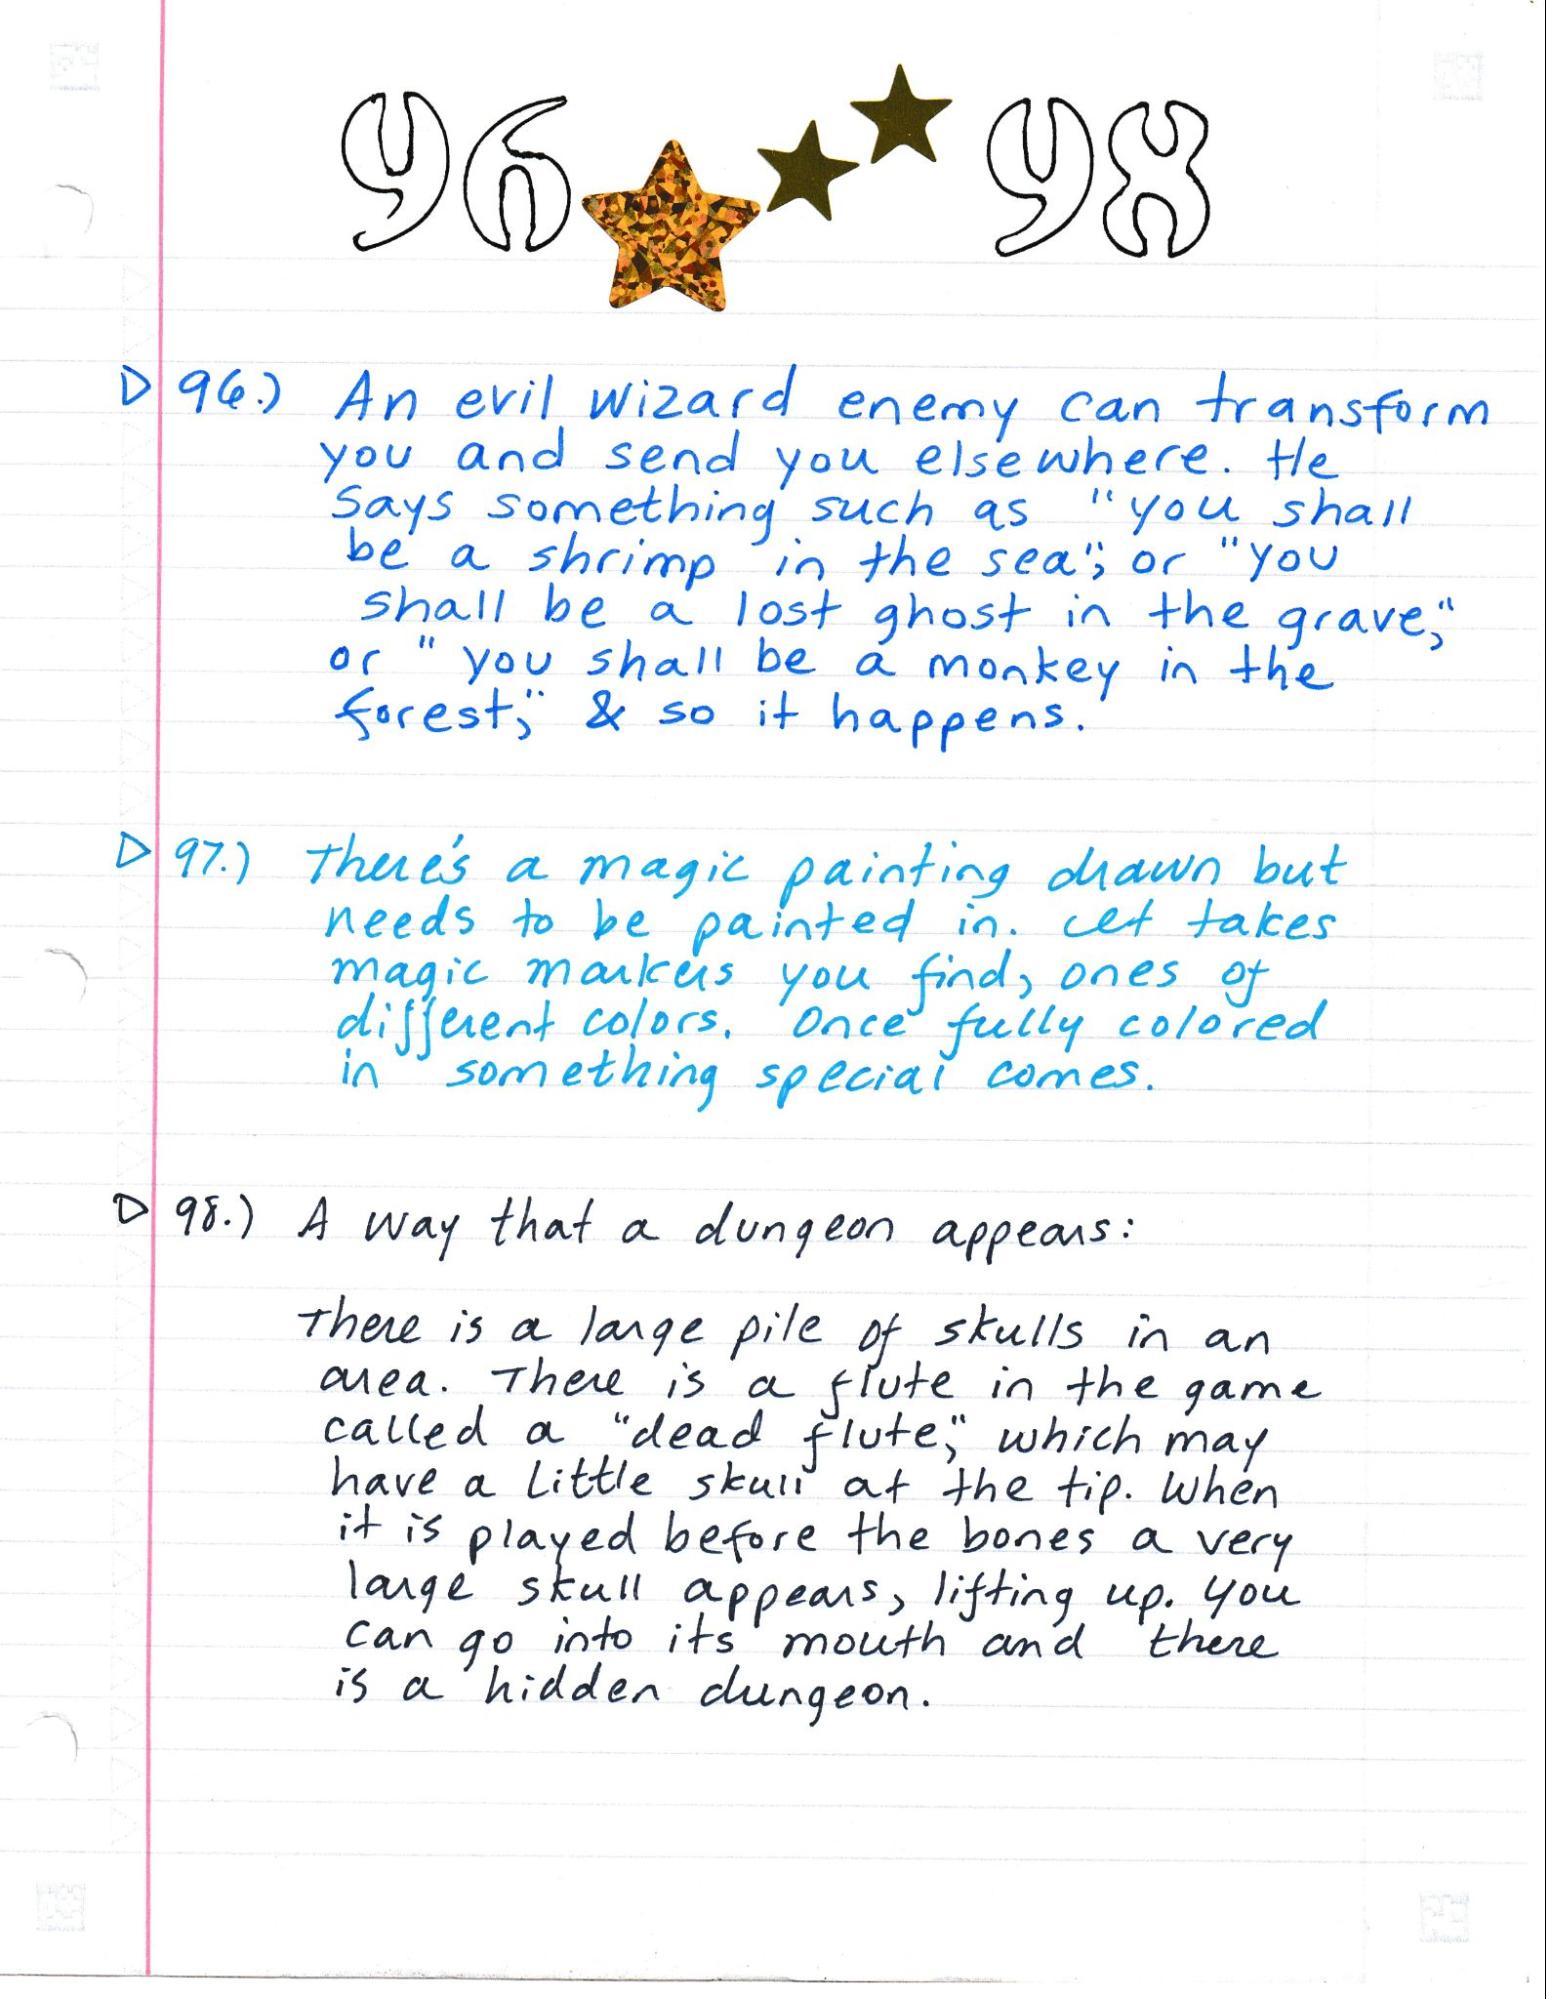 96 98
96.) An evil wizard enemy can transform
you and send you elsewhere. He
says something such as "you shall
be a shrimp in the sea", or "you
shall be a lost ghost in the grave,"
or "you shall be a monkey in the
forest," & so it happens.
97.) There's a magic painting drawn but
needs to be painted in. It takes
magic markers you find, ones of
different colors. Once fully colored
in something special comes.
98.) A way that a dungeon appears:
There is a large pile of skulls in an
area. There is a flute in the game
called a "dead flute," which may
have a little skull at the tip. When
it is played before the bones a very
large skull appears, lifting up. You
can go into its mouth and there
is a hidden dungeon.